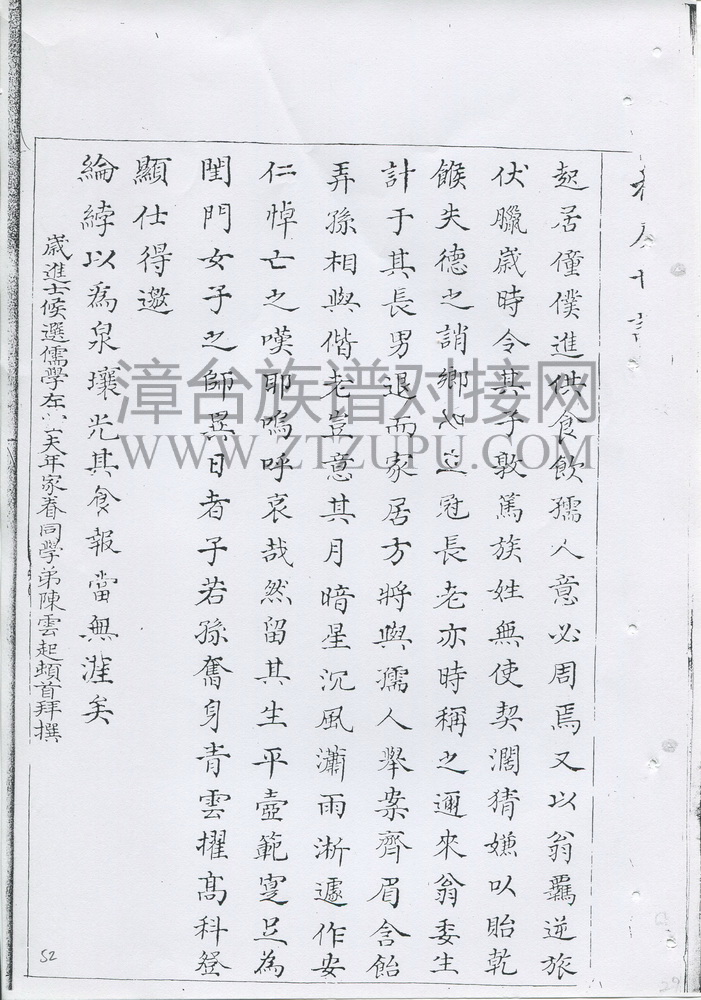 起居僮僕進供食飲孺人意必周焉又以翁羈逆旅
伏臘歲時令其子敦篤族姓無使契濶猜嫌以貽乾
餱失德之誚鄉之冠長老亦時稱之邇來翁委生
計于其長男退而家居方將與孺人舉案齊眉含飴
弄孫相與偕老豈意其月暗星沉風瀟雨淅遽作安
仁悼亡之嘆耶嗚呼哀哉然留其生平壼範寔足為
閨門女子之師異日者子若孫奮身青雲擢髙科登
顯仕得邀
綸綍以爲泉壤光其食報當無涯矣
歲進士候選儒學年家眷同學弟陳雲起頓首拜撰
漳台族谱对接网
WWW.ZTZUPU.COM
52
29